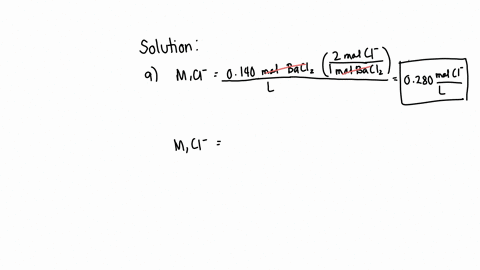 Solution:
a) M, Cl⁻ = 0.140 mol BaCl₂ (2 mol Cl⁻ / 1 mol BaCl₂) / L = 0.280 mol Cl⁻ / L
M, Cl⁻ =